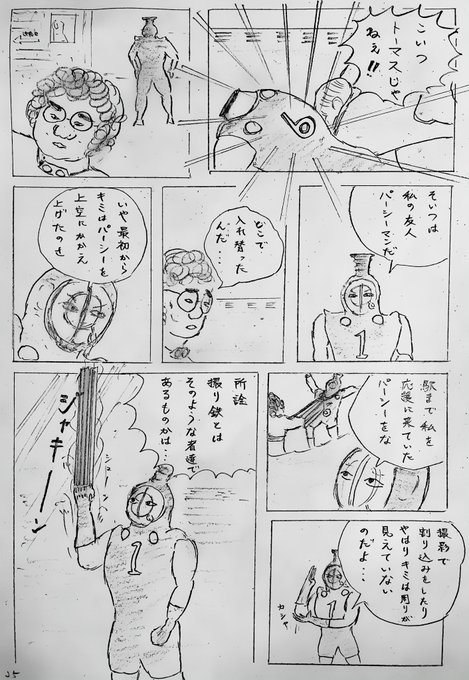 こいつ
トーマスじゃ
ねぇ!!
そいつは
私の友人
パーシーマンだ
どこで
入れ替った
んだ…
いや最初から
キミはパーシーを
上空にかかえ
上げたのさ
駅まで私を
応援に来ていた
パーシーをな
撮影で
割り込みをしたり
やはりキミは周りが
見えていない
のだよ…
カシャ
所詮
撮り鉄とは
そのような者達で
あるものかは…
ジャキーーン
25